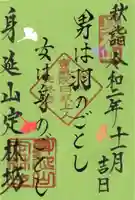 秋詣 令和二年十一月吉日
男は羽のごとし
女は身のごとし
身延山定林坊